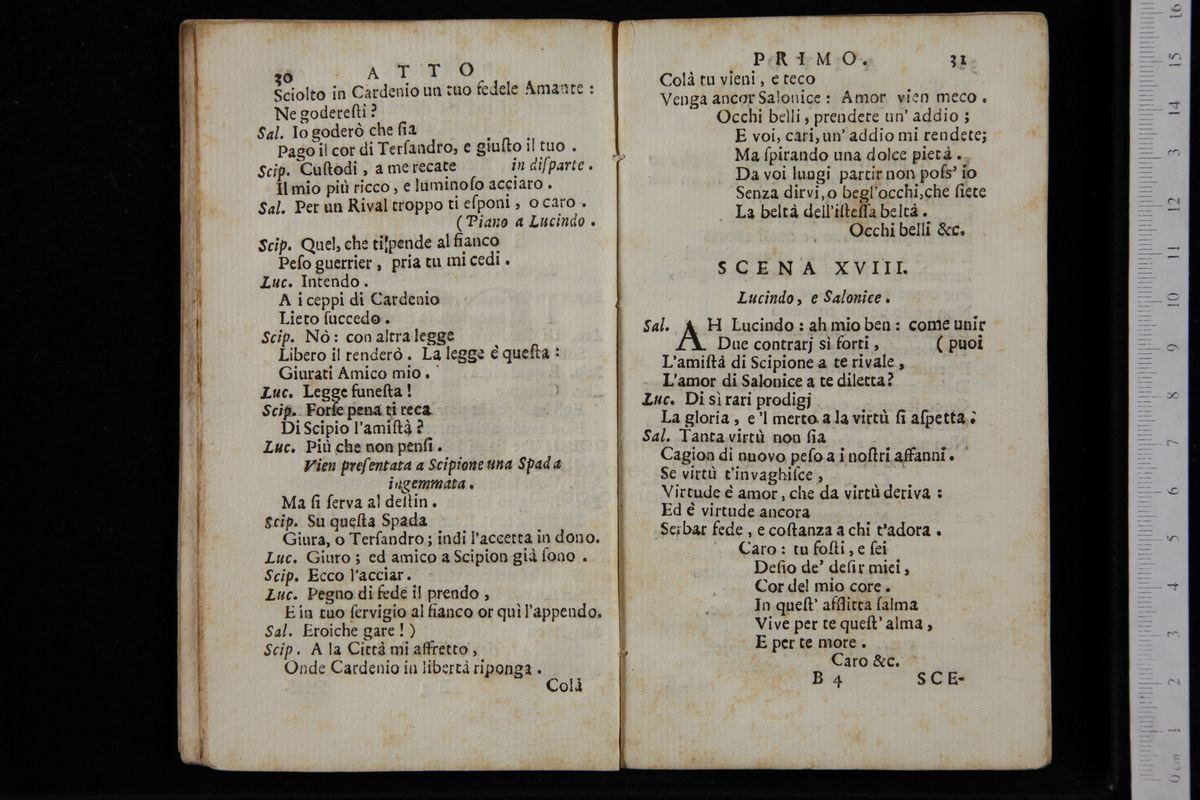 30 ATTO
Sciolto in Cardenio un tuo fedele Amante :
Ne godereſti ?
Sal. Io goderò che ſia
Pago il cor di Terſandro, e giuſto il tuo .
Scip. Cuſtodi , a me recate in diſparte .
Il mio più ricco , e luminoſo acciaro .
Sal. Per un Rival troppo ti eſponi , o caro .
( Piano a Lucindo .
Scip. Quel, che ti ſpende al fianco
Peſo guerrier , pria tu mi cedi .
Luc. Intendo .
A i ceppi di Cardenio
Lieto ſuccedo .
Scip. Nò : con altra legge
Libero il renderò . La legge è queſta :
Giurati Amico mio .
Luc. Legge funeſta !
Scip. Forſe pena ti reca
Di Scipio l'amiſtà ?
Luc. Più che non penſi .
Vien preſentata a Scipione una Spada
ingemmata .
Ma ſi ſerva al deſtin .
Scip. Su queſta Spada
Giura, o Terſandro ; indi l'accetta in dono.
Luc. Giuro ; ed amico a Scipion già ſono .
Scip. Ecco l'acciar .
Luc. Pegno di fede il prendo ,
E in tuo ſervigio al fianco or quì l'appendo.
Sal. Eroiche gare ! )
Scip. A la Città mi affretto ,
Onde Cardenio in libertà riponga .
Colà
PRIMO. 31
Colà tu vieni , e teco
Venga ancor Salonice : Amor vien meco .
Occhi belli , prendete un' addio ;
E voi, cari, un' addio mi rendete;
Ma ſpirando una dolce pietà .
Da voi lungi partir non poſs' io
Senza dirvi, o begl'occhi, che ſiete
La beltà dell'iſteſſa beltà .
Occhi belli &c.
SCENA XVIII.
Lucindo, e Salonice .
Sal. AH Lucindo : ah mio ben : come unir
Due contrarj sì forti , ( puoi
L'amiſtà di Scipione a te rivale ,
L'amor di Salonice a te diletta?
Luc. Di sì rari prodigj
La gloria , e 'l merto a la virtù ſi aſpetta .
Sal. Tanta virtù non ſia
Cagion di nuovo peſo a i noſtri affanni .
Se virtù t'invaghiſce ,
Virtude è amor , che da virtù deriva :
Ed è virtude ancora
Serbar fede , e coſtanza a chi t'adora .
Caro : tu foſti , e ſei
Deſio de' deſir miei ,
Cor del mio core .
In queſt' afflitta ſalma
Vive per te queſt' alma ,
E per te more .
Caro &c.
B 4 SCE-
0 cm 1 2 3 4 5 6 7 8 9 10 11 12 13 14 15 16